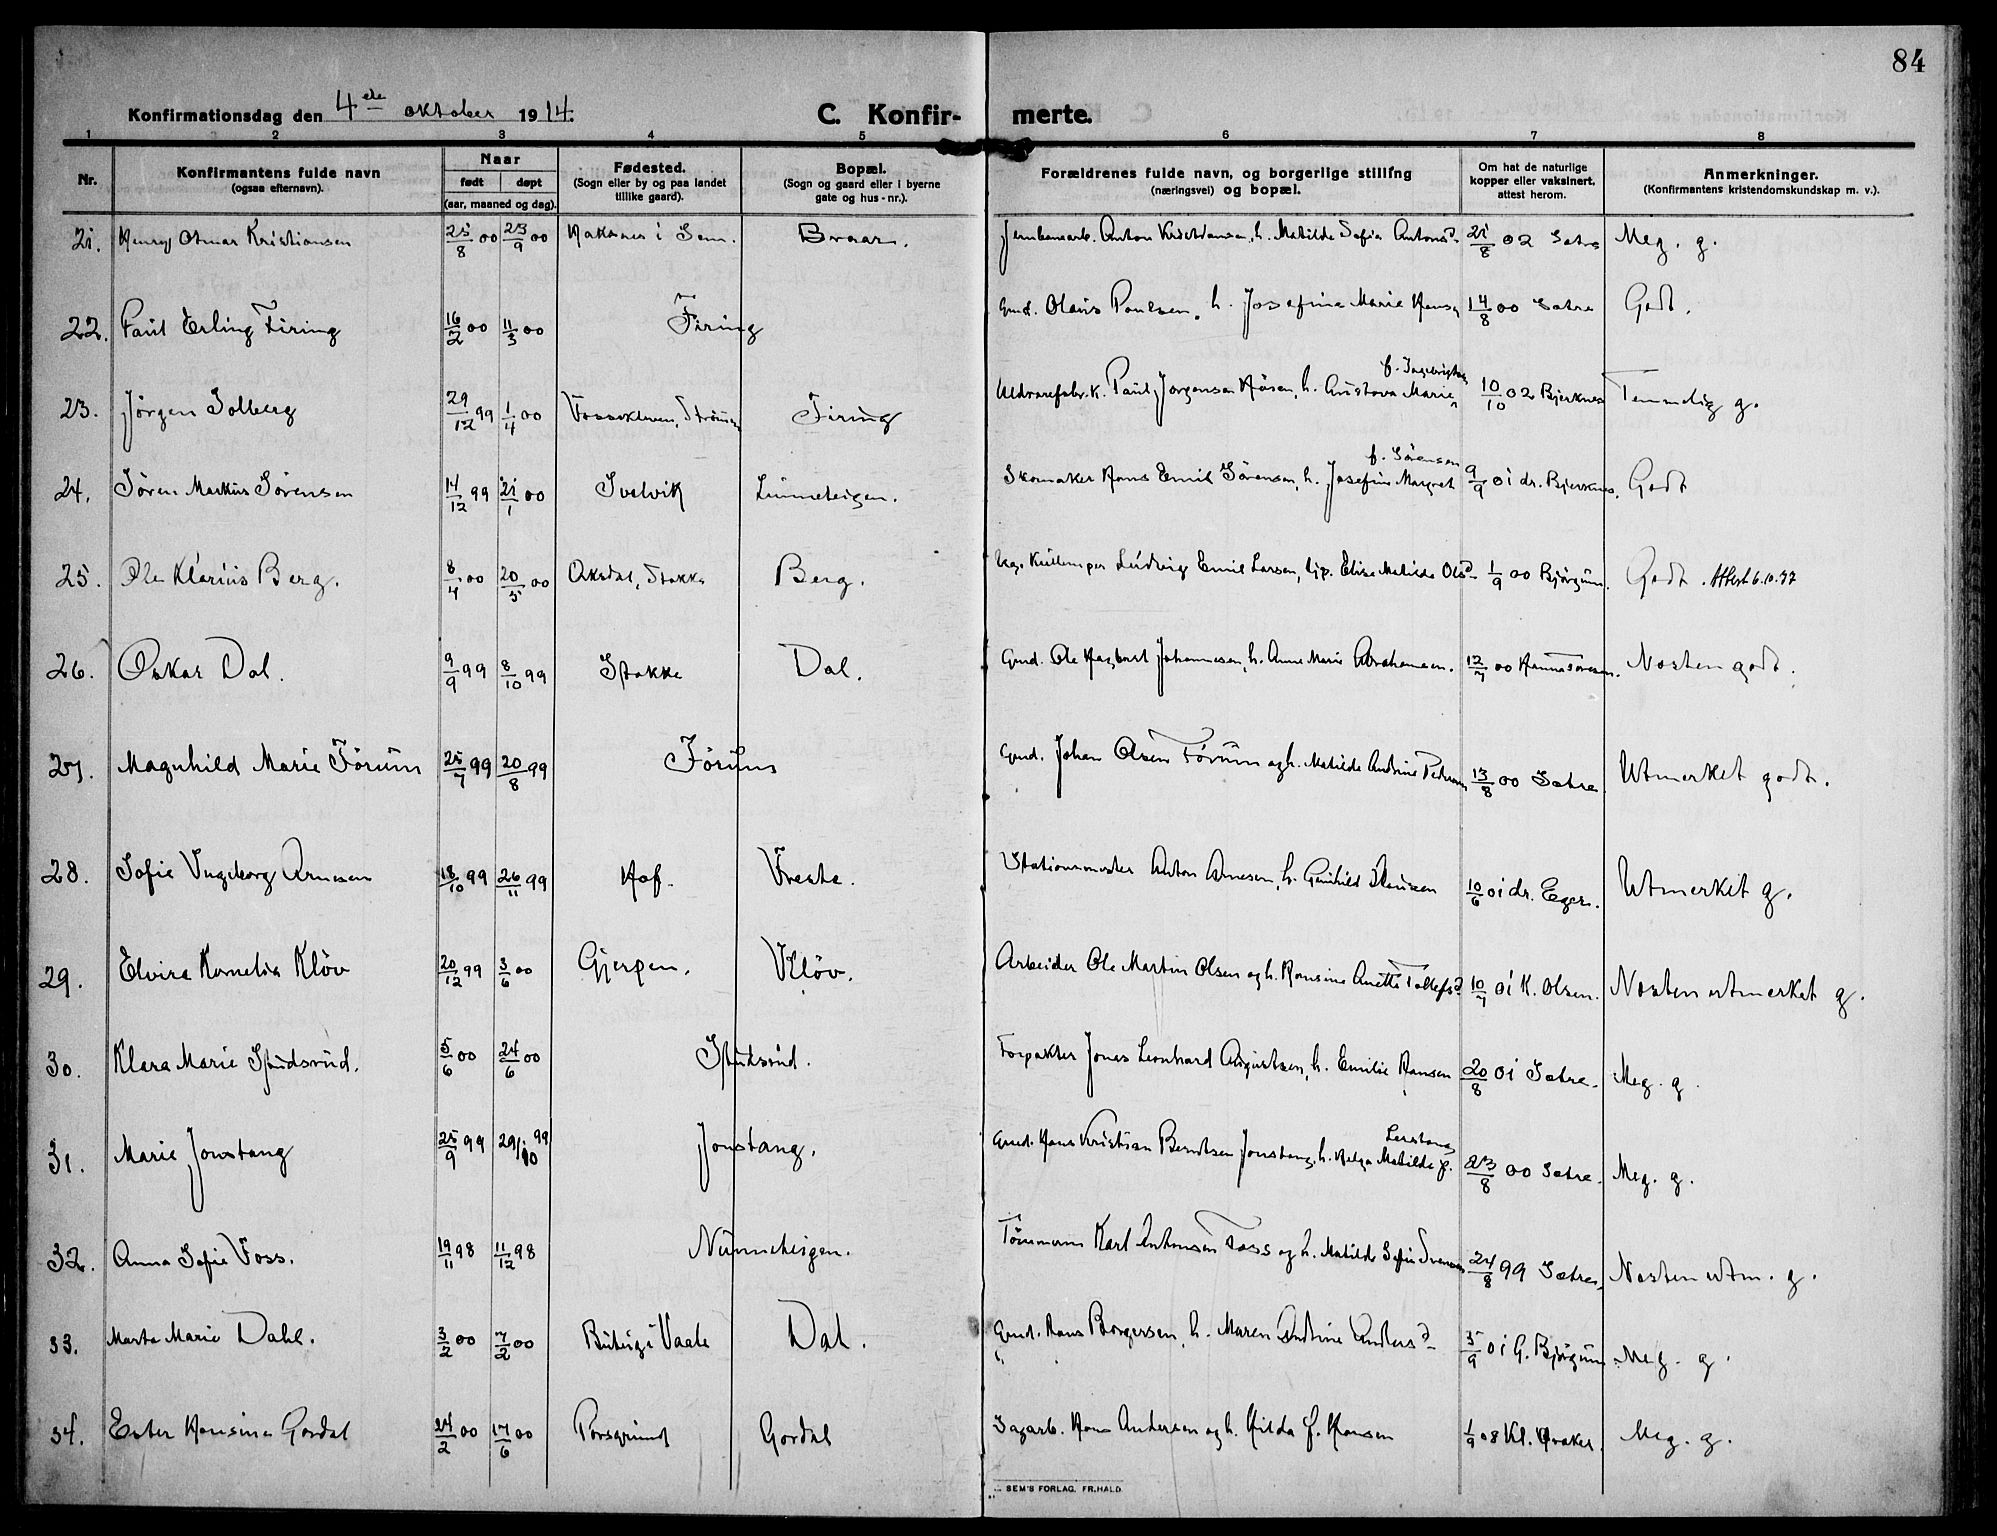 84
Konfirmationsdag den 4de oktober 1914.
C. Konfir- merte.
1 2 3 4 5 6 7 8
Nr.
Konfirmantens fulde navn
(ogsaa efternavn).
Naar
født døpt
(aar, maaned og dag).
Fødested.
(Sogn eller by og paa landet
tillike gaard).
Bopæl.
(Sogn og gaard eller i byerne
gate og hus-nr.).
Forældrenes fulde navn, og borgerlige stillifng
(næringsvei) og bopæl.
Om hat de naturlige
kopper eller vaksinert,
attest herom.
Anmerkninger.
(Konfirmantens kristendomskundskap m. v.).
21. Henry Otmar Kristiansen 25/8 00 23/9 00 i Sem. Braar. Jernbanearb. Anton Kristiansen, h. Matilde Sofie Antonsd. 21/8 02 Sætre Meg. g.
22. Paul Erling Firing 16/2 00 11/3 00 Firing Gmd. Olaus Paulsen, h. Josefine Marie Hansd 14/8 00 Sætre Godt.
f. Ingebrigtsen
23. Jörgen Solberg 29/12 99 1/4 00 Fossekleven, Strömm Firing Uldvarefabr.k. Paul Jorgensen Aasen, h. Gustava Marie 10/10 02 Bjerknes Temmelig g.
f. Sörensen
24. Sören Markus Sörensen 14/12 99 21/1 00 Svelvik Linneteigen. Skomaker Hans Emil Sörensen, h. Josefine Margret 9/9 01 dr. Bjerknes. Godt
25. Ole Klarius Berg. 8/4 00 20/5 00 Aksdal, Stokke Berg. Ludvig Emil Larsen, Elise Matilde Olsd 1/9 00 Bjørgum. Godt. Attest 6.10.37
26. Oskar Dal. 9/9 99 8/10 99 Stokke Dal. Gmd. Ole Hagbart Johannesen, h. Anne Marie Abrahamsen. 12/7 00 Hanna Toresen. Næsten godt.
27. Magnhild Marie Förum 25/7 99 20/8 99 Förum Gmd. Johan Olsen Förum og h. Matilde Andrine Pedersen 13/8 00 Sætre. Utmerket godt.
28. Sofie Ingeborg Arnesen 18/10 99 26/11 99 Hof. Freste. Stationsmester Anton Arnesen, h. Gunhild Hansen 10/6 01 dr. Eger. Utmerket g.
29. Elvira Kornelia Klöv 20/12 99 3/6 00 Gjerpen. Klöv. Arbeider Ole Martin Olsen og h. Hansine Anette Tollefsd 10/7 01 K. Olsen. Næsten utmerket g.
30. Klara Marie Spudsrud. 5/6 00 24/6 00 Spudsrud. Forpakter Jonas Leonhard Augustsen, h. Emilie Hansen 20/8 01 Sætre. Meg. g.
Lerstang
31. Marie Jonstang 25/9 99 29/10 99 Jonstang. Gmd. Hans Kristian Berntsen Jonstang, h. Helga Matilde f. 23/8 00 Sætre. Meg. g.
32. Anna Sofie Foss. 19/11 98 11/12 98 Nunneteigen. Tömmerm. Karl Antonsen Foss og h. Matilde Sofie Svensen 24/8 99 Sætre. Næsten utm. g.
33. Marta Marie Dahl. 3/2 00 7/2 00 i Vaale Dal. Gmd. Hans Borgersen, h. Maren Andrine Andersd 5/9 01 G. Bjørgum Meg. g.
34. Ester Hansine Gordal 24/2 00 17/6 00 Porsgrund Gordal Sagarb. Hans Andersen og h. Hilda f. Hansen 1/9 08 Kl. Qvaker. Meg. g.
SEM'S FORLAG. FR.HALD